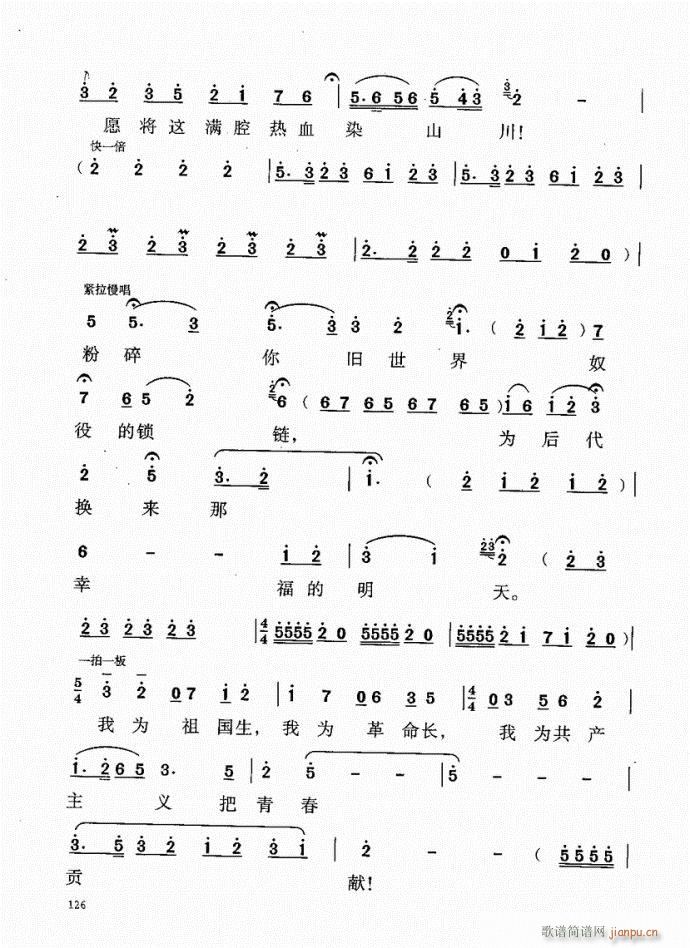 3 2 3 5 2 i 7 6 | 5·6 5 6 5 4 3 3 2 –
愿将这满腔热血染山川!
快一倍
( 2 2 2 2 | 5·3 2 3 6 i 2 3 | 5·3 2 3 6 i 2 3 |
2 3 2 3 2 3 2 3 | 2· 2 2 2 0 i 2 0 ) |
紧拉慢唱
5 5· 3 5· 3 3 2 2 i· ( 2 i 2 ) 7
粉碎你旧世界奴
7 6 5 2 2 6 ( 6 7 6 5 6 7 6 5 ) i 6 i 2 3
役的锁链,为后代
2 5 3· 2 | i· ( 2 i 2 i i 2 )
换来那
6 – – i 2 | 3 i 2 3 2 ( 2 3
幸福的明天。
2 3 2 3 2 3 | 4/4 5 5 5 5 2 0 5 5 5 5 2 0 | 5 5 5 5 2 i 7 i 2 0 ) |
一拍一板
5/4 3 2 0 7 i 2 | i 7 0 6 3 5 | 4/4 0 3 5 6 2
我为祖国生,我为革命长,我为共产
i· 2 6 5 3· 5 | 2 5 – – | 5 – – – |
主义把青春
3· 5 3 2 i 2 3 i | 2 – – ( 5 5 5 5 |
贡献!
126
歌谱简谱网
jianpu.cn